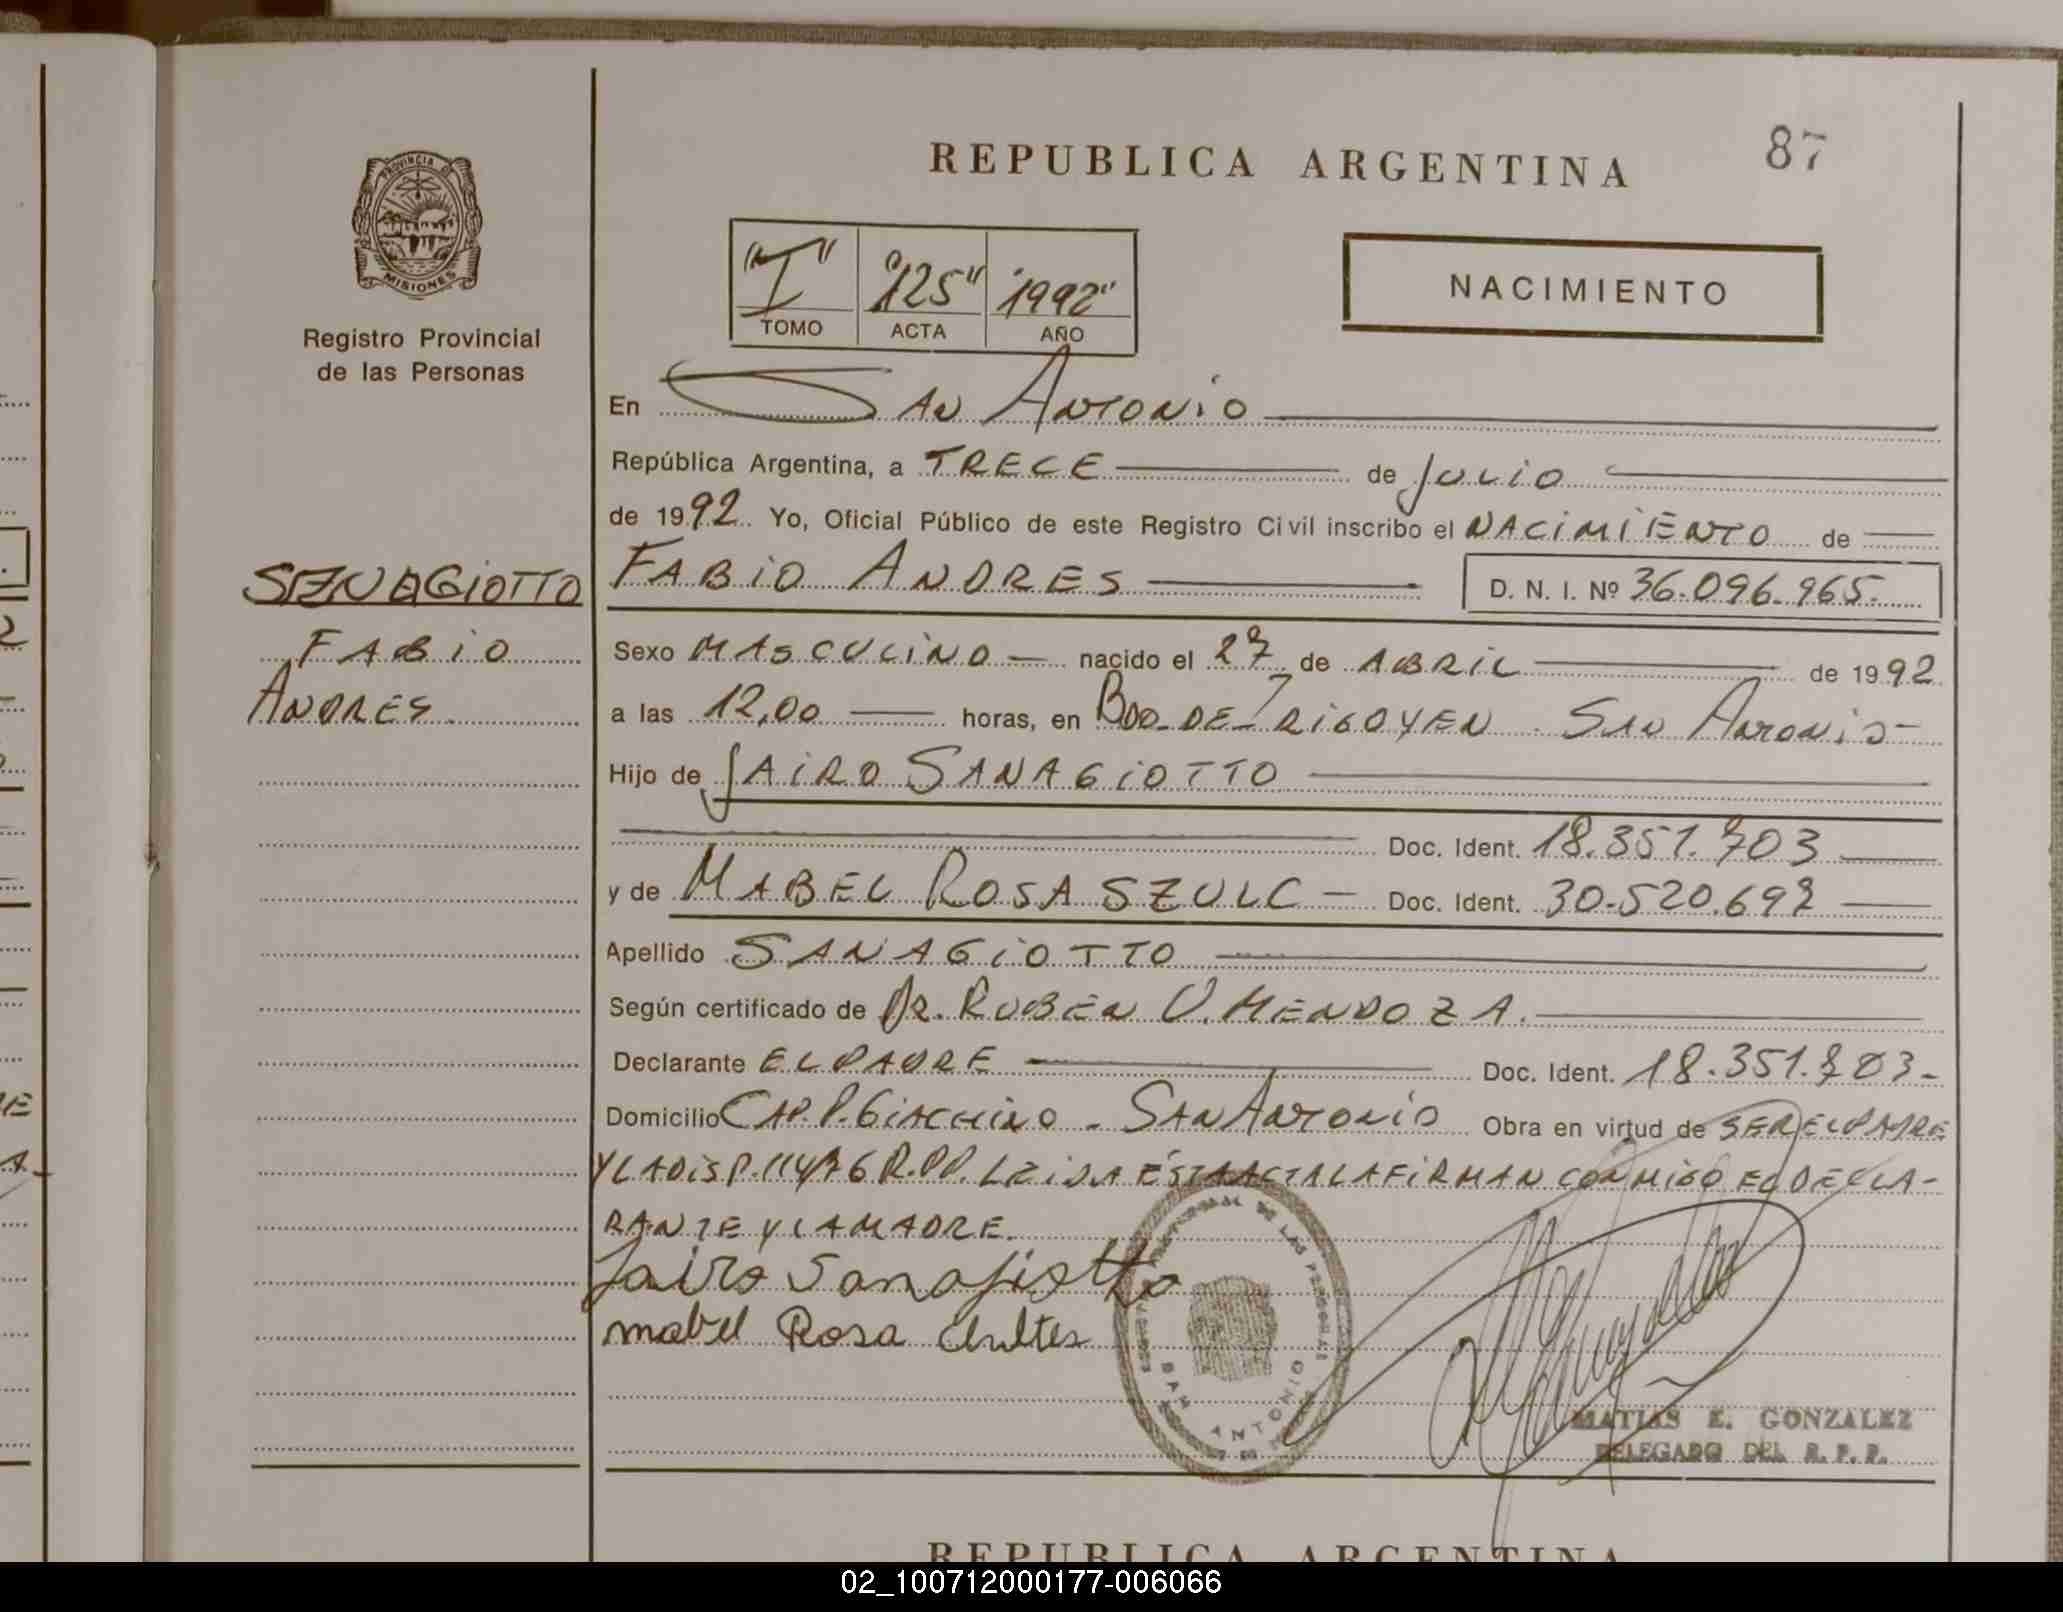 REPUBLICA ARGENTINA
87
PROVINCIA DE
MISIONES
Registro Provincial
de las Personas
"I" "125" "1992"
TOMO ACTA AÑO
NACIMIENTO
En SAN ANTONIO
República Argentina, a TRECE de JULIO
de 1992. Yo, Oficial Público de este Registro Civil inscribo el NACIMIENTO de
SANAGIOTTO
FABIO
ANDRES
FABIO ANDRES
D. N. I. Nº 36.096.965.
Sexo MASCULINO nacido el 27 de ABRIL de 1992
a las 12,00 horas, en BDO. DE IRIGOYEN SAN ANTONIO
Hijo de JAIRO SANAGIOTTO
Doc. Ident. 18.351.703
y de MABEL ROSA SZULC Doc. Ident. 30.520.697
Apellido SANAGIOTTO
Según certificado de DR. RUBEN V. MENDOZA.
Declarante EL PADRE Doc. Ident. 18.351.703
Domicilio CAP. P. GIACHINO - SAN ANTONIO Obra en virtud de SER EL PADRE
Y LA DISP. 114/76 R.P.P. LEIDA ESTA ACTA LA FIRMAN CONMIGO EL DECLA-
RANTE Y LA MADRE.
Jairo Sanagiotto
Mabel Rosa
SAN ANTONIO
MATIAS E. GONZALEZ
DELEGADO DEL R. P. P.
REPUBLICA ARGENTINA
02_100712000177-006066